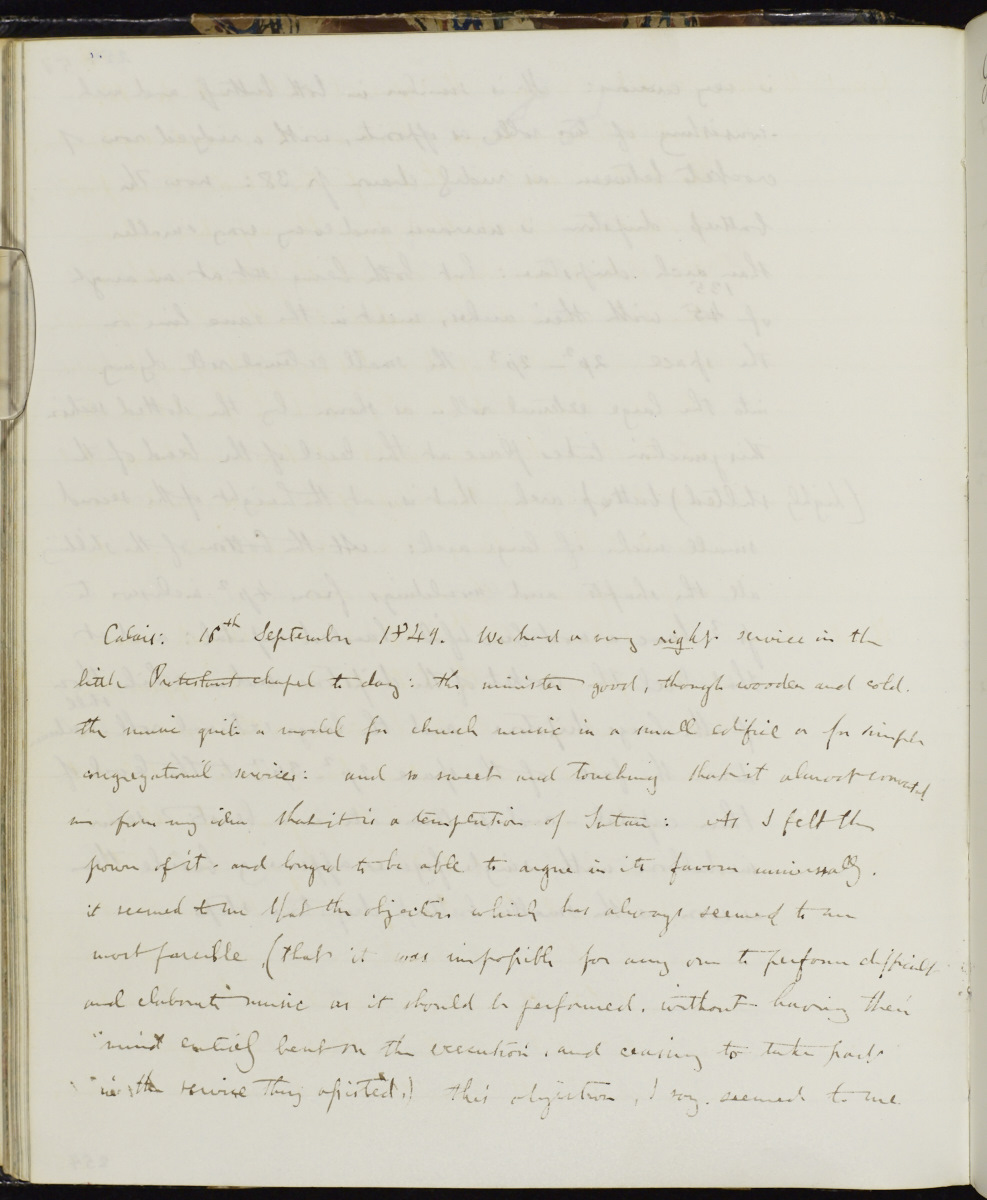 Calais: 16th September 1849. We had a very right service in the
little Protestant chapel to day: the minister good, though wooden and cold.
the music quite a model for church music in a small edifice or for simple
congregational services: and so sweet and touching that it almost converted
me from my idea that it is a temptation of Satan: As I felt the
power of it. and longed to be able to argue in its favour universally.
it seemed to me that the objection which has always seemed to me
most forcible (that it was impossible for any one to perform difficult
and elaborate music as it should be performed. without having their
mind entirely bent on the execution, and ceasing to take part
in the service they assisted.) this objection, I say. seemed to me